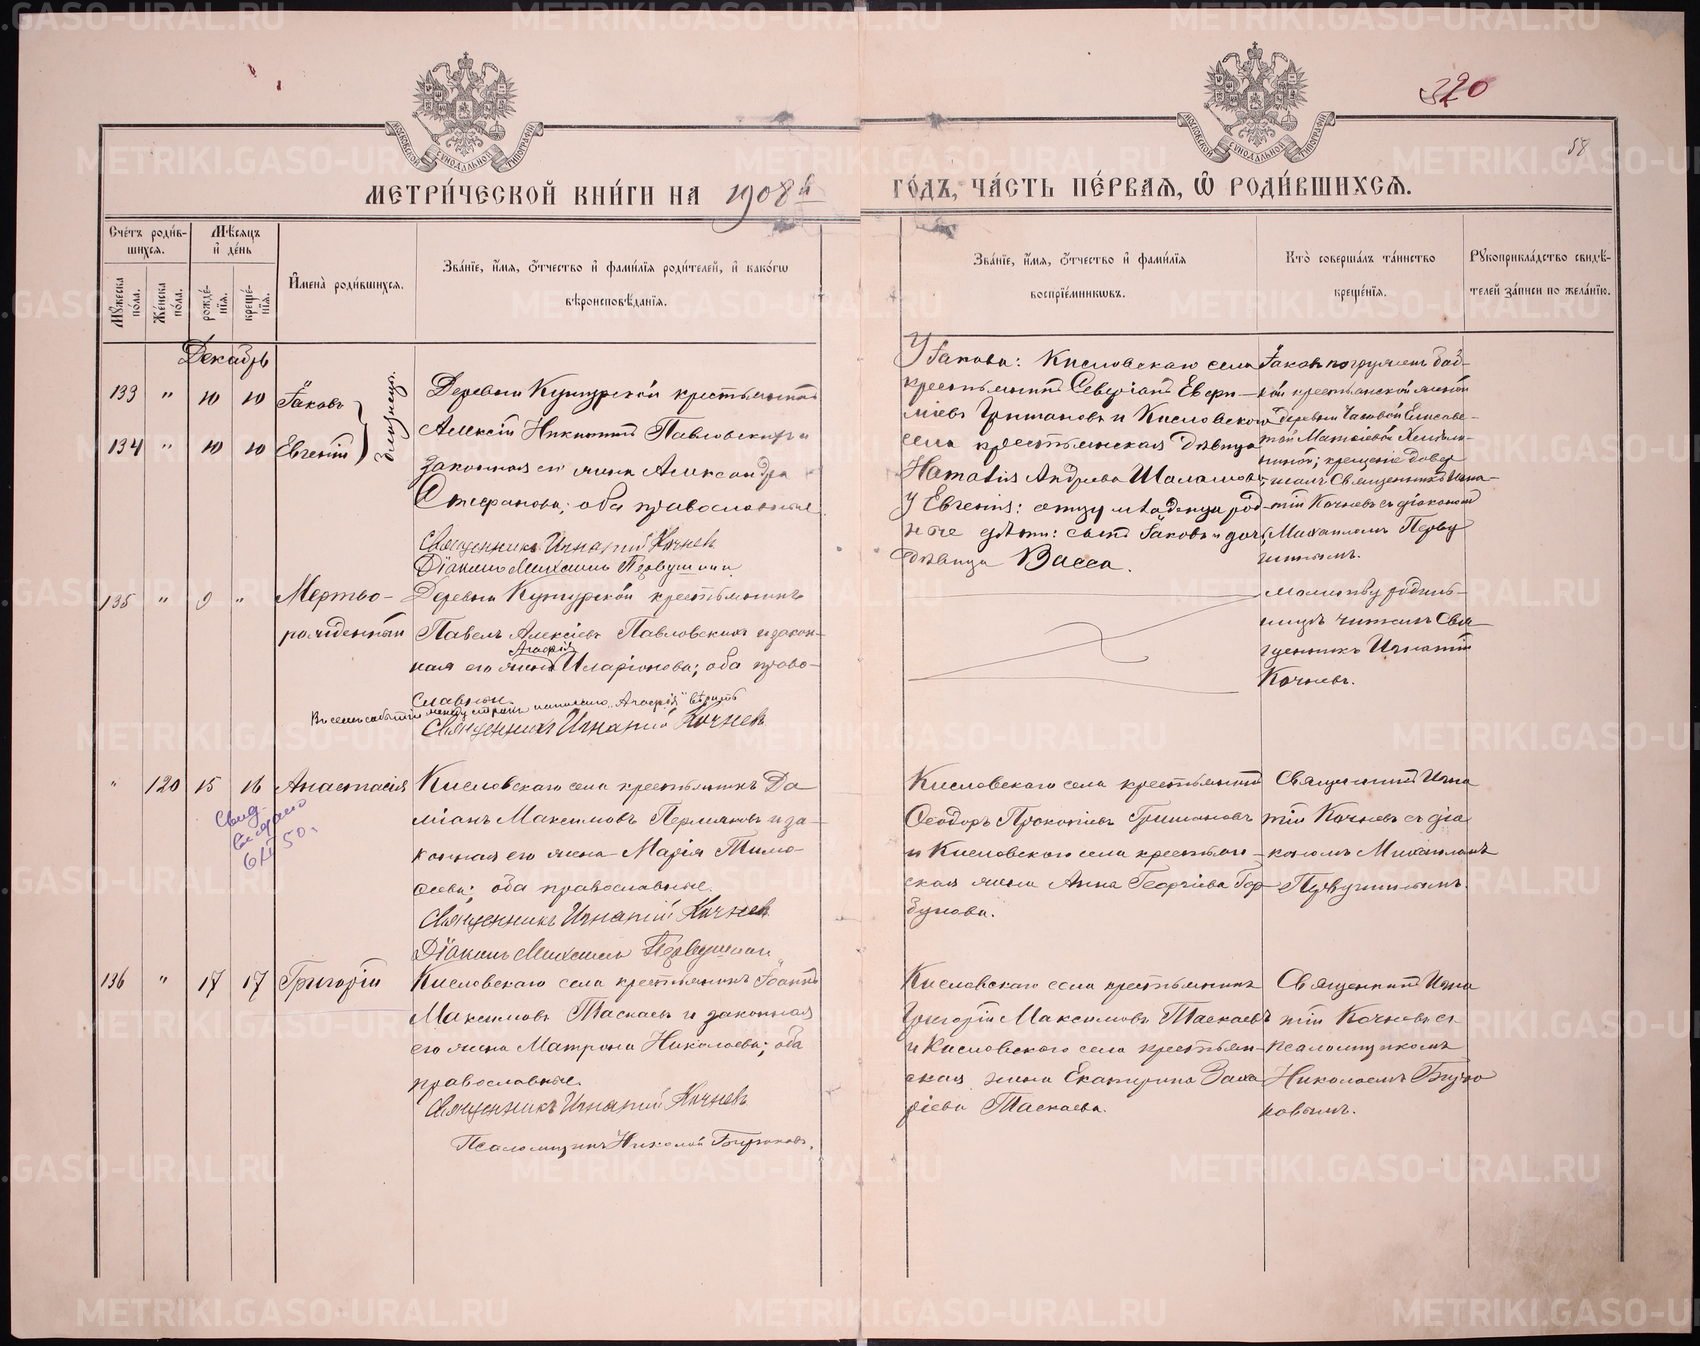 320
58
МОСКОВСКОЙ СѴНОДАЛЬНОЙ ТИПОГРАФІИ
МОСКОВСКОЙ СѴНОДАЛЬНОЙ ТИПОГРАФІИ
МЕТРИ́ЧЕСКОЙ КНИ́ГИ НА 1908й ГО́ДЪ, ЧА́СТЬ ПЕ́РВАѦ, Ѽ РОДИ́ВШИХСѦ.
Сче́тъ роди́в-
шихсѧ.
Мꙋжеска по́ла.
Же́нска по́ла.
Мѣ́сѧцъ
и҆ де́нь
рожде́-
нїѧ.
креще́-
нїѧ.
И҆мена̀ роди́вшихсѧ.
Зва́нїе, и҆́мѧ, ѻ҆́тчество и҆ фами́лїѧ роди́телей, и҆ како́гѡ
вѣроисповѣ́данїѧ.
Зва́нїе, и҆́мѧ, ѻ҆́тчество и҆ фами́лїѧ
воспрїе́мникѡвъ.
Кто̀ соверша́лъ та́инство
креще́нїѧ.
Рꙋкоприкла́дство свидѣ́-
телей за́писи по жела́нїю.
Декабрь
133 " 10 10 Іаковъ
134 " 10 10 Евгеній
близнецы.
Деревни Кутурской крестьянинъ
Алексій Никитинъ Павловскихъ и
законная его жена Александра
Стефанова; оба православные
Священникъ Игнатій Кочневъ
Діаконъ Михаилъ Первушинъ
У Іакова: Кисловскаго села
крестьянинъ Северіанъ Евфи-
міевъ Гришановъ и Кисловскаго
села крестьянская дѣвица
Наталія Андреева Шаламова;
У Евгенія: отцу младенца род-
ные дѣти: сынъ Іаковъ и дочь
дѣвица Васса.
Іаковъ погруженъ баб-
кой крестьянской женой
деревни Часовой Елисаве-
той Матѳіевой
крещеніе довер-
шалъ Священникъ Игна-
тій Кочневъ съ діакономъ
Михаиломъ Перву-
шинымъ.
135 " 9 " Мертво-
рожденный
Деревни Кутурской крестьянинъ
Павелъ Алексіевъ Павловскихъ и закон-
Агафія
ная его жена Иларіонова; оба право-
славные.
Въ семъ событіи между строкъ написано „Агафія" вѣрить
Священникъ Игнатій Кочневъ
молитву родиль-
ницѣ читалъ Свя-
щенникъ Игнатій
Кочневъ.
" 120 15 16 Анастасія
Свид.
выдано
50 г.
Кисловскаго села крестьянинъ Да-
міанъ Максимовъ Пермяковъ и за-
конная его жена Марія Тимо-
ѳеева; оба православные.
Священникъ Игнатій Кочневъ
Діаконъ Михаилъ Первушинъ
Кисловскаго села крестьянинъ
Ѳеодоръ Прокопіевъ Гришановъ
и Кисловскаго села крестьян-
ская жена Анна Георгіева Гор-
бунова.
Священникъ Игна-
тій Кочневъ съ діа-
кономъ Михаиломъ
Первушинымъ.
136 " 17 17 Григорій
Кисловскаго села крестьянинъ Іоаннъ
Максимовъ Таскаевъ и законная
его жена Матрона Николаева; оба
православные.
Священникъ Игнатій Кочневъ
Псаломщикъ Николай Бирюковъ.
Кисловскаго села крестьянинъ
Григорій Максимовъ Таскаевъ
и Кисловскаго села крестьян-
ская жена Екатерина Заха-
ріева Таскаева.
Священникъ Игна-
тій Кочневъ съ
псаломщикомъ
Николаемъ Бирю-
ковымъ.
METRIKI.GASO-URAL.RU